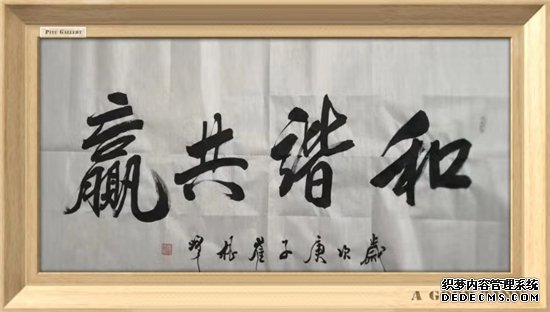 PITU GALLERY
和谐共赢
歲次庚子崔
织梦内容管理系统
DEDECMS.COM